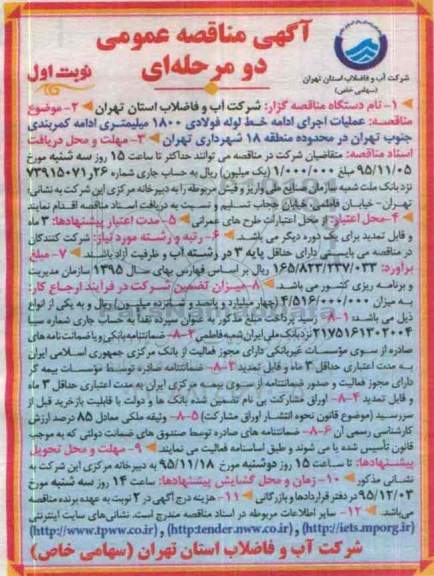 آگهی مناقصه عمومی
دو مرحله‌ای
نوبت اول
شرکت آب و فاضلاب استان تهران
(سهامی خاص)
۱- نام دستگاه مناقصه گزار: شرکت آب و فاضلاب استان تهران ۲- موضوع
مناقصه: عملیات اجرای ادامه خط لوله فولادی ۱۸۰۰ میلیمتری ادامه کمربندی
جنوب تهران در محدوده منطقه ۱۸ شهرداری تهران ۳- مهلت و محل دریافت
اسناد مناقصه: متقاضیان شرکت در مناقصه می توانند حداکثر تا ساعت ۱۵ روز سه شنبه مورخ
۹۵/۱۱/۰۵ مبلغ ۱/۰۰۰/۰۰۰ (یک میلیون) ریال به حساب جاری شماره ۷۳۹۱۵۰۷۱٫۲۶
نزد بانک ملت شعبه سازمان صنایع ملی واریز و فیش مربوطه را به دبیرخانه مرکزی این شرکت به نشانی:
تهران - خیابان فاطمی - خیابان حجاب تسلیم و نسبت به دریافت اسناد مناقصه اقدام نمایند
۴- محل اعتبار: از محل اعتبارات طرح های عمرانی ۵- مدت اعتبار پیشنهادها: ۳ ماه
و قابل تمدید برای یک دوره دیگر می باشد. ۶- رتبه و رشته مورد نیاز: شرکت کنندگان
در مناقصه می بایستی دارای حداقل پایه ۳ در رشته آب و ظرفیت آزاد باشند. ۷- مبلغ
برآورد: ۱۶۵/۸۲۳/۲۳۷/۰۳۳ ریال بر اساس فهارس بهای سال ۱۳۹۵ سازمان مدیریت
و برنامه ریزی کشور می باشد. ۸- میزان تضمین شرکت در فرآیند ارجاع کار:
به میزان ۴/۵۱۶/۰۰۰/۰۰۰ (چهار میلیارد و پانصد و شانزده میلیون) ریال و به یکی از انواع
ذیل می باشد: ۸-۱- رسید پرداخت مبلغ مذکور به عنوان سپرده نقداً به حساب جاری شماره سیبا
۲۱۷۵۱۶۱۳۰۲۰۰۴ نزد بانک ملی ایران شعبه فاطمی ۸-۲- ضمانتنامه بانکی و یا ضمانت نامه های
صادره از سوی مؤسسات غیربانکی دارای مجوز فعالیت از بانک مرکزی جمهوری اسلامی ایران
به مدت اعتباری حداقل ۳ ماه و قابل تمدید ۸-۳- ضمانتنامه صادره توسط مؤسسات بیمه گر
دارای مجوز فعالیت و صدور ضمانتنامه از سوی بیمه مرکزی ایران به مدت اعتباری حداقل ۳ ماه
و قابل تمدید ۸-۴- اوراق مشارکت بی نام تضمین شده بانک ها و دولت با قابلیت بازخرید قبل از
سررسید (موضوع قانون نحوه انتشار اوراق مشارکت) ۸-۵- وثیقه ملکی معادل ۸۵ درصد ارزش
کارشناسی رسمی آن ۸-۶- ضمانتنامه های صادره توسط صندوق های ضمانت دولتی که به موجب
قانون تأسیس شده یا می شوند و طبق اساسنامه فعالیت می نمایند. ۹- مهلت و محل تحویل
پیشنهادها: تا ساعت ۱۵ روز دوشنبه مورخ ۹۵/۱۱/۱۸ به دبیرخانه مرکزی این شرکت به
نشانی مذکور ۱۰- زمان و محل گشایش پیشنهادها: ساعت ۱۴ روز سه شنبه مورخ
۹۵/۱۲/۰۳ در دفتر قراردادها و بازرگانی ۱۱- هزینه درج آگهی در ۲ نوبت به عهده برنده مناقصه
می باشد. ۱۲- سایر اطلاعات مربوطه در اسناد مناقصه مندرج است. نشانی های سایت اینترنتی
(http://iets.mporg.ir) , (http:tender.nww.co.ir) , (http://www.tpww.co.ir)
شرکت آب و فاضلاب استان تهران (سهامی خاص)